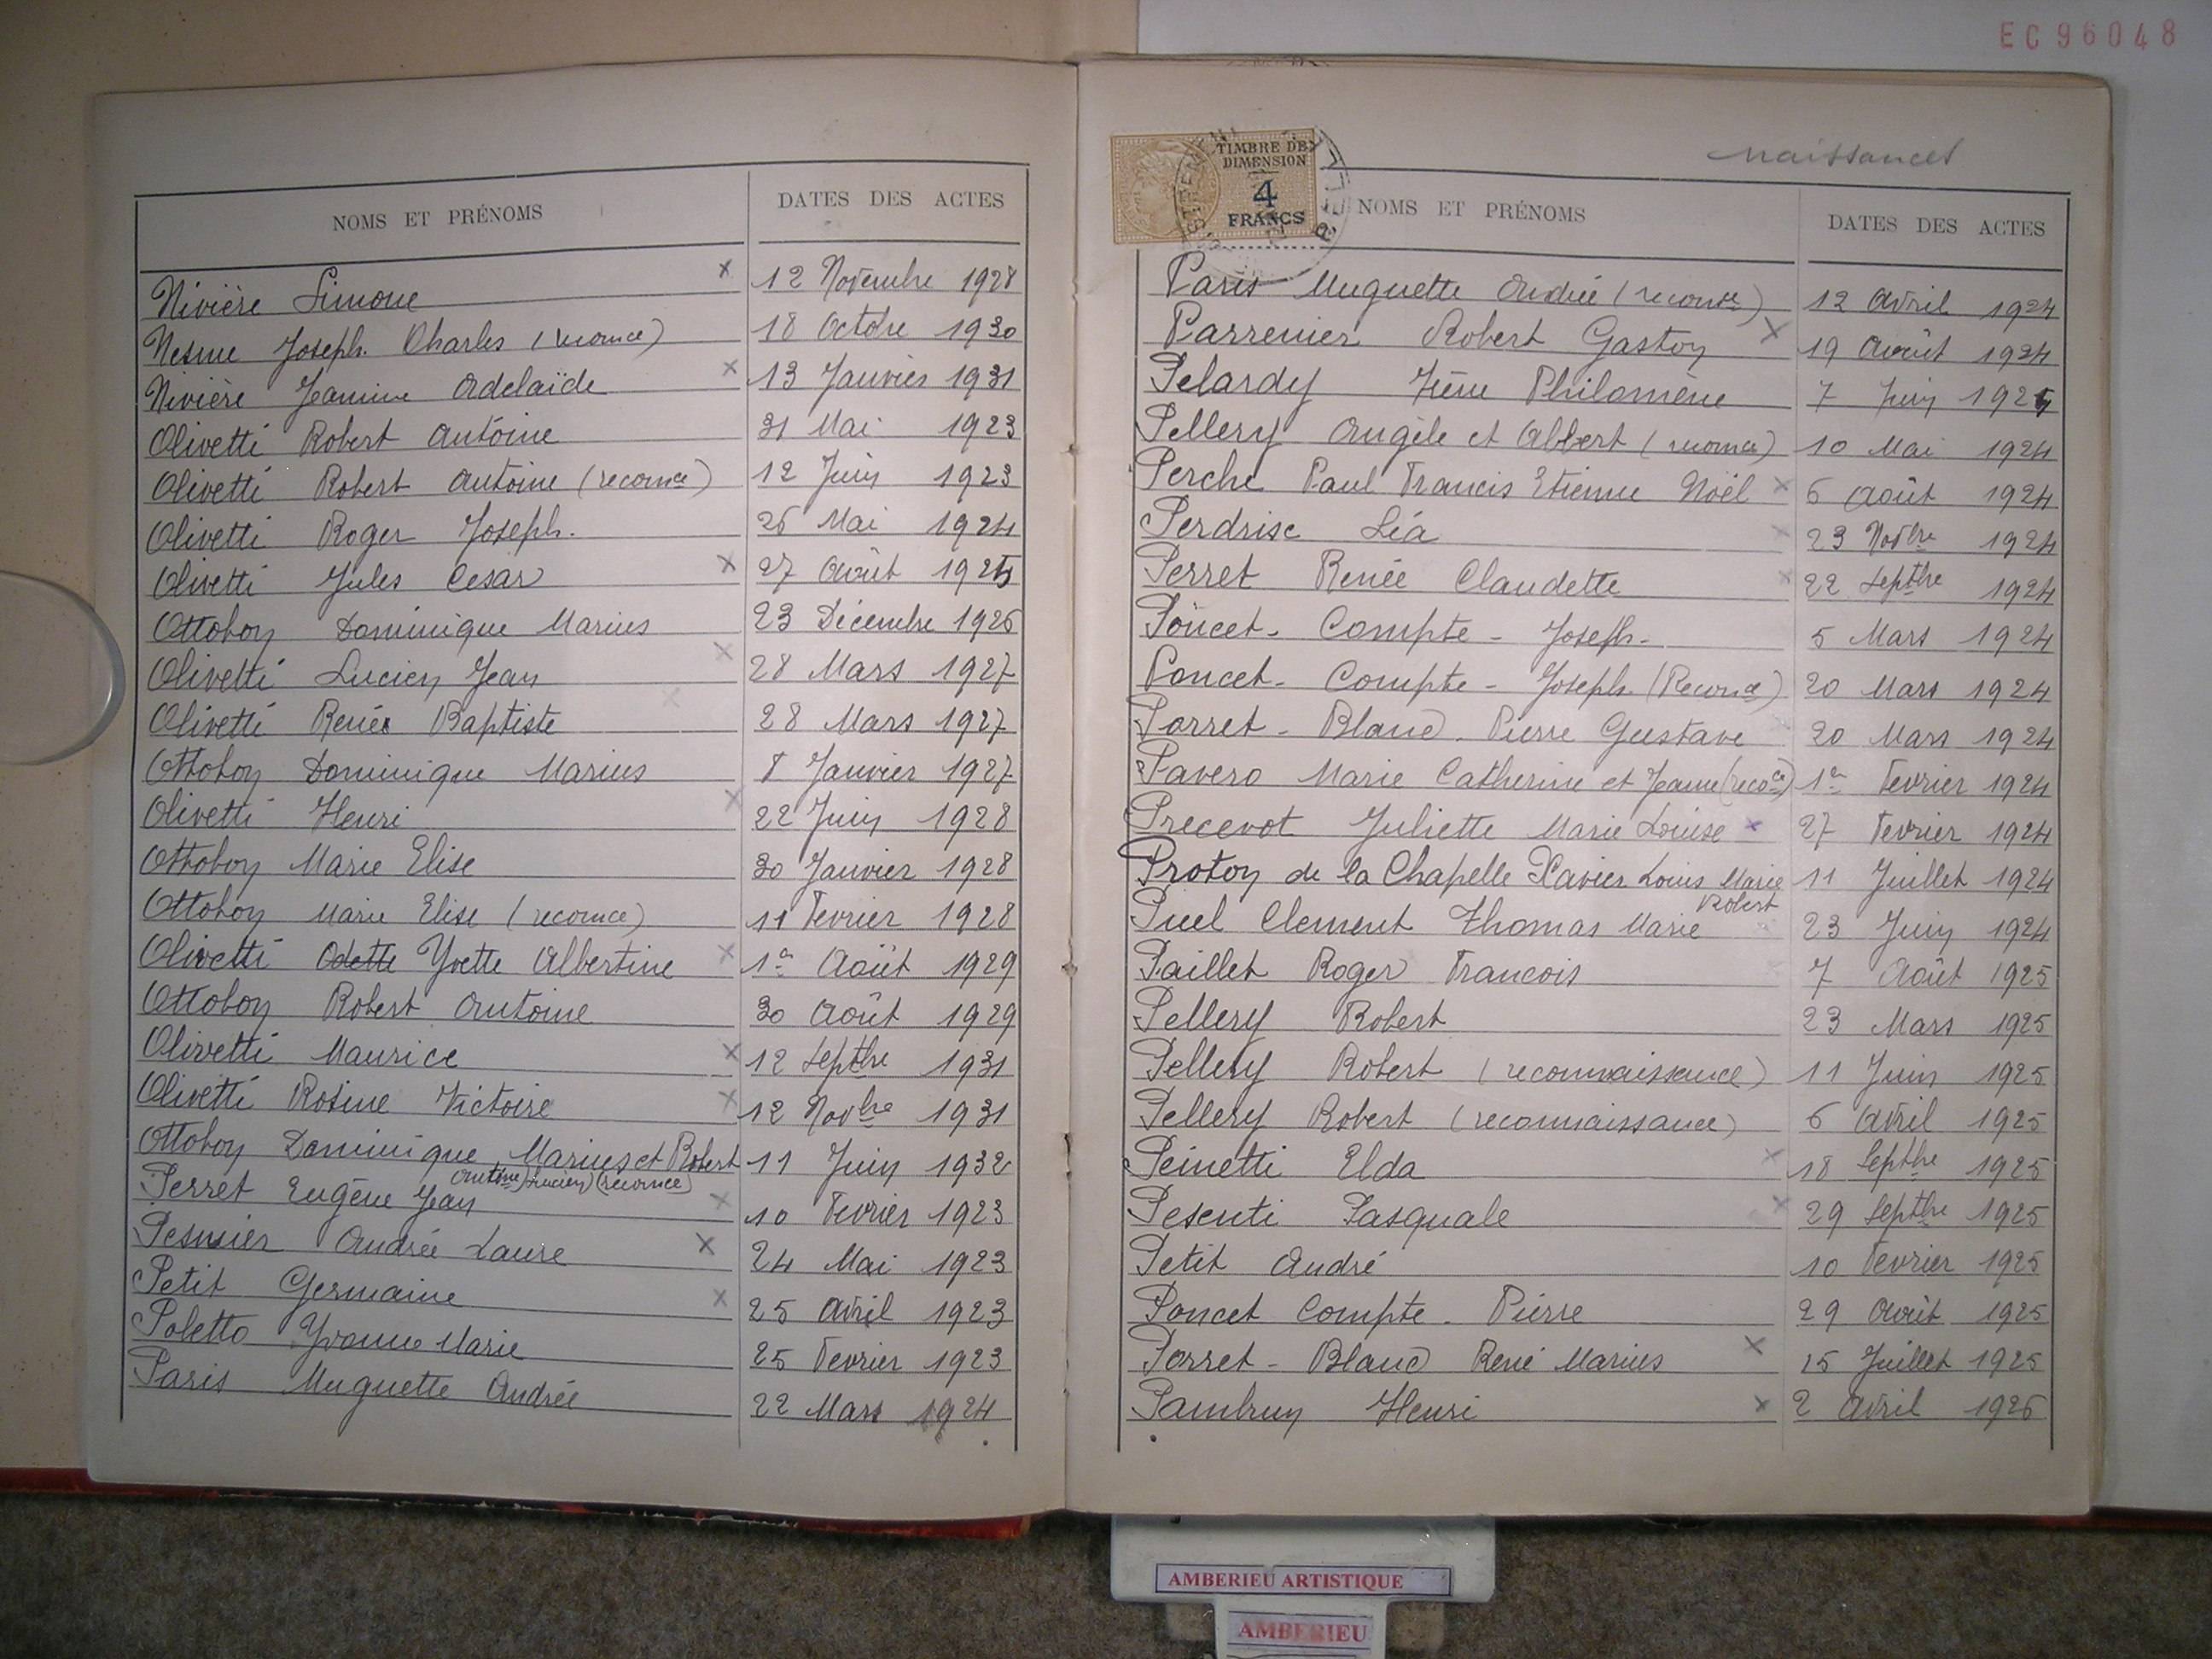 EC96048
NOMS ET PRÉNOMS DATES DES ACTES
Nivière Simone x 12 Novembre 1928
Nesme Joseph Charles (reconce) 18 Octbre 1930
Nivière Jeanine Adelaïde x 13 Janvier 1931
Olivetti Robert Antoine 31 Mai 1923
Olivetti Robert Antoine (reconce) 12 Juin 1923
Olivetti Roger Joseph. 26 Mai 1924
Olivetti Jules Cesar x 27 Août 1925
Ottobon Dominique Marius 23 Décembre 1926
Olivetti Lucien Jean x 28 Mars 1927
Olivetti René Baptiste x 28 Mars 1927
Ottobon Dominique Marius 8 Janvier 1927
Olivetti Henri x 22 Juin 1928
Ottobon Marie Elise 30 Janvier 1928
Ottobon Marie Elise (reconce) 11 Fevrier 1928
Olivetti Odette Yvette Albertine x 1er Août 1929
Ottobon Robert Antoine 30 Août 1929
Olivetti Maurice x 12 Septbre 1931
Olivetti Rosine Victoire x 12 Novbre 1931
Ottobon Dominique Marius et Robert 11 Juin 1932
Antoine Lucien (reconce)
Perret Eugène Jean x 10 Fevrier 1923
Pesmier Andrée Laure x 24 Mai 1923
Petit Germaine x 25 Avril 1923
Poletto Yvonne Marie 25 Fevrier 1923
Paris Muguette Andrée 22 Mars 1924
TIMBRE DE
DIMENSION
4
FRANCS
Naissances
NOMS ET PRÉNOMS DATES DES ACTES
Paris Muguette Andrée (reconce) 12 Avril 1924
Parrenier Robert Gaston x 19 Août 1924
Pelardy Irène Philomène 7 Juin 1924
Pellery Angèle et Albert (reconce) 10 Mai 1924
Perche Paul Francis Etienne Noël x 6 Août 1924
Perdrisc Léa x 23 Novbre 1924
Perret Renée Claudette x 22 Septbre 1924
Poncet - Compte - Joseph - 5 Mars 1924
Poncet - Compte - Joseph (Reconce) 20 Mars 1924
Porret - Blanc. Pierre Gustave 20 Mars 1924
Pavero Marie Catherine et Jeanne (recoce) 1er Fevrier 1924
Precevot Juliette Marie Louise x 27 Fevrier 1924
Proton de la Chapelle Xavier Louis Marie 11 Juillet 1924
Robert
Puel Clement Thomas Marie 23 Juin 1924
Paillet Roger Francois 7 Août 1925
Pellery Robert 23 Mars 1925
Pellery Robert (reconnaissance) 11 Juin 1925
Pellery Robert (reconnaissance) 6 Avril 1925
Peinetti Elda x 18 Septbre 1925
Pesenti Pasquale x 29 Septbre 1925
Petit André 10 Fevrier 1925
Poncet Compte - Pierre 29 Août 1925
Porret - Blanc René Marius x 15 Juillet 1925
Pambrun Henri x 2 Avril 1926
AMBERIEU ARTISTIQUE
AMBERIEU